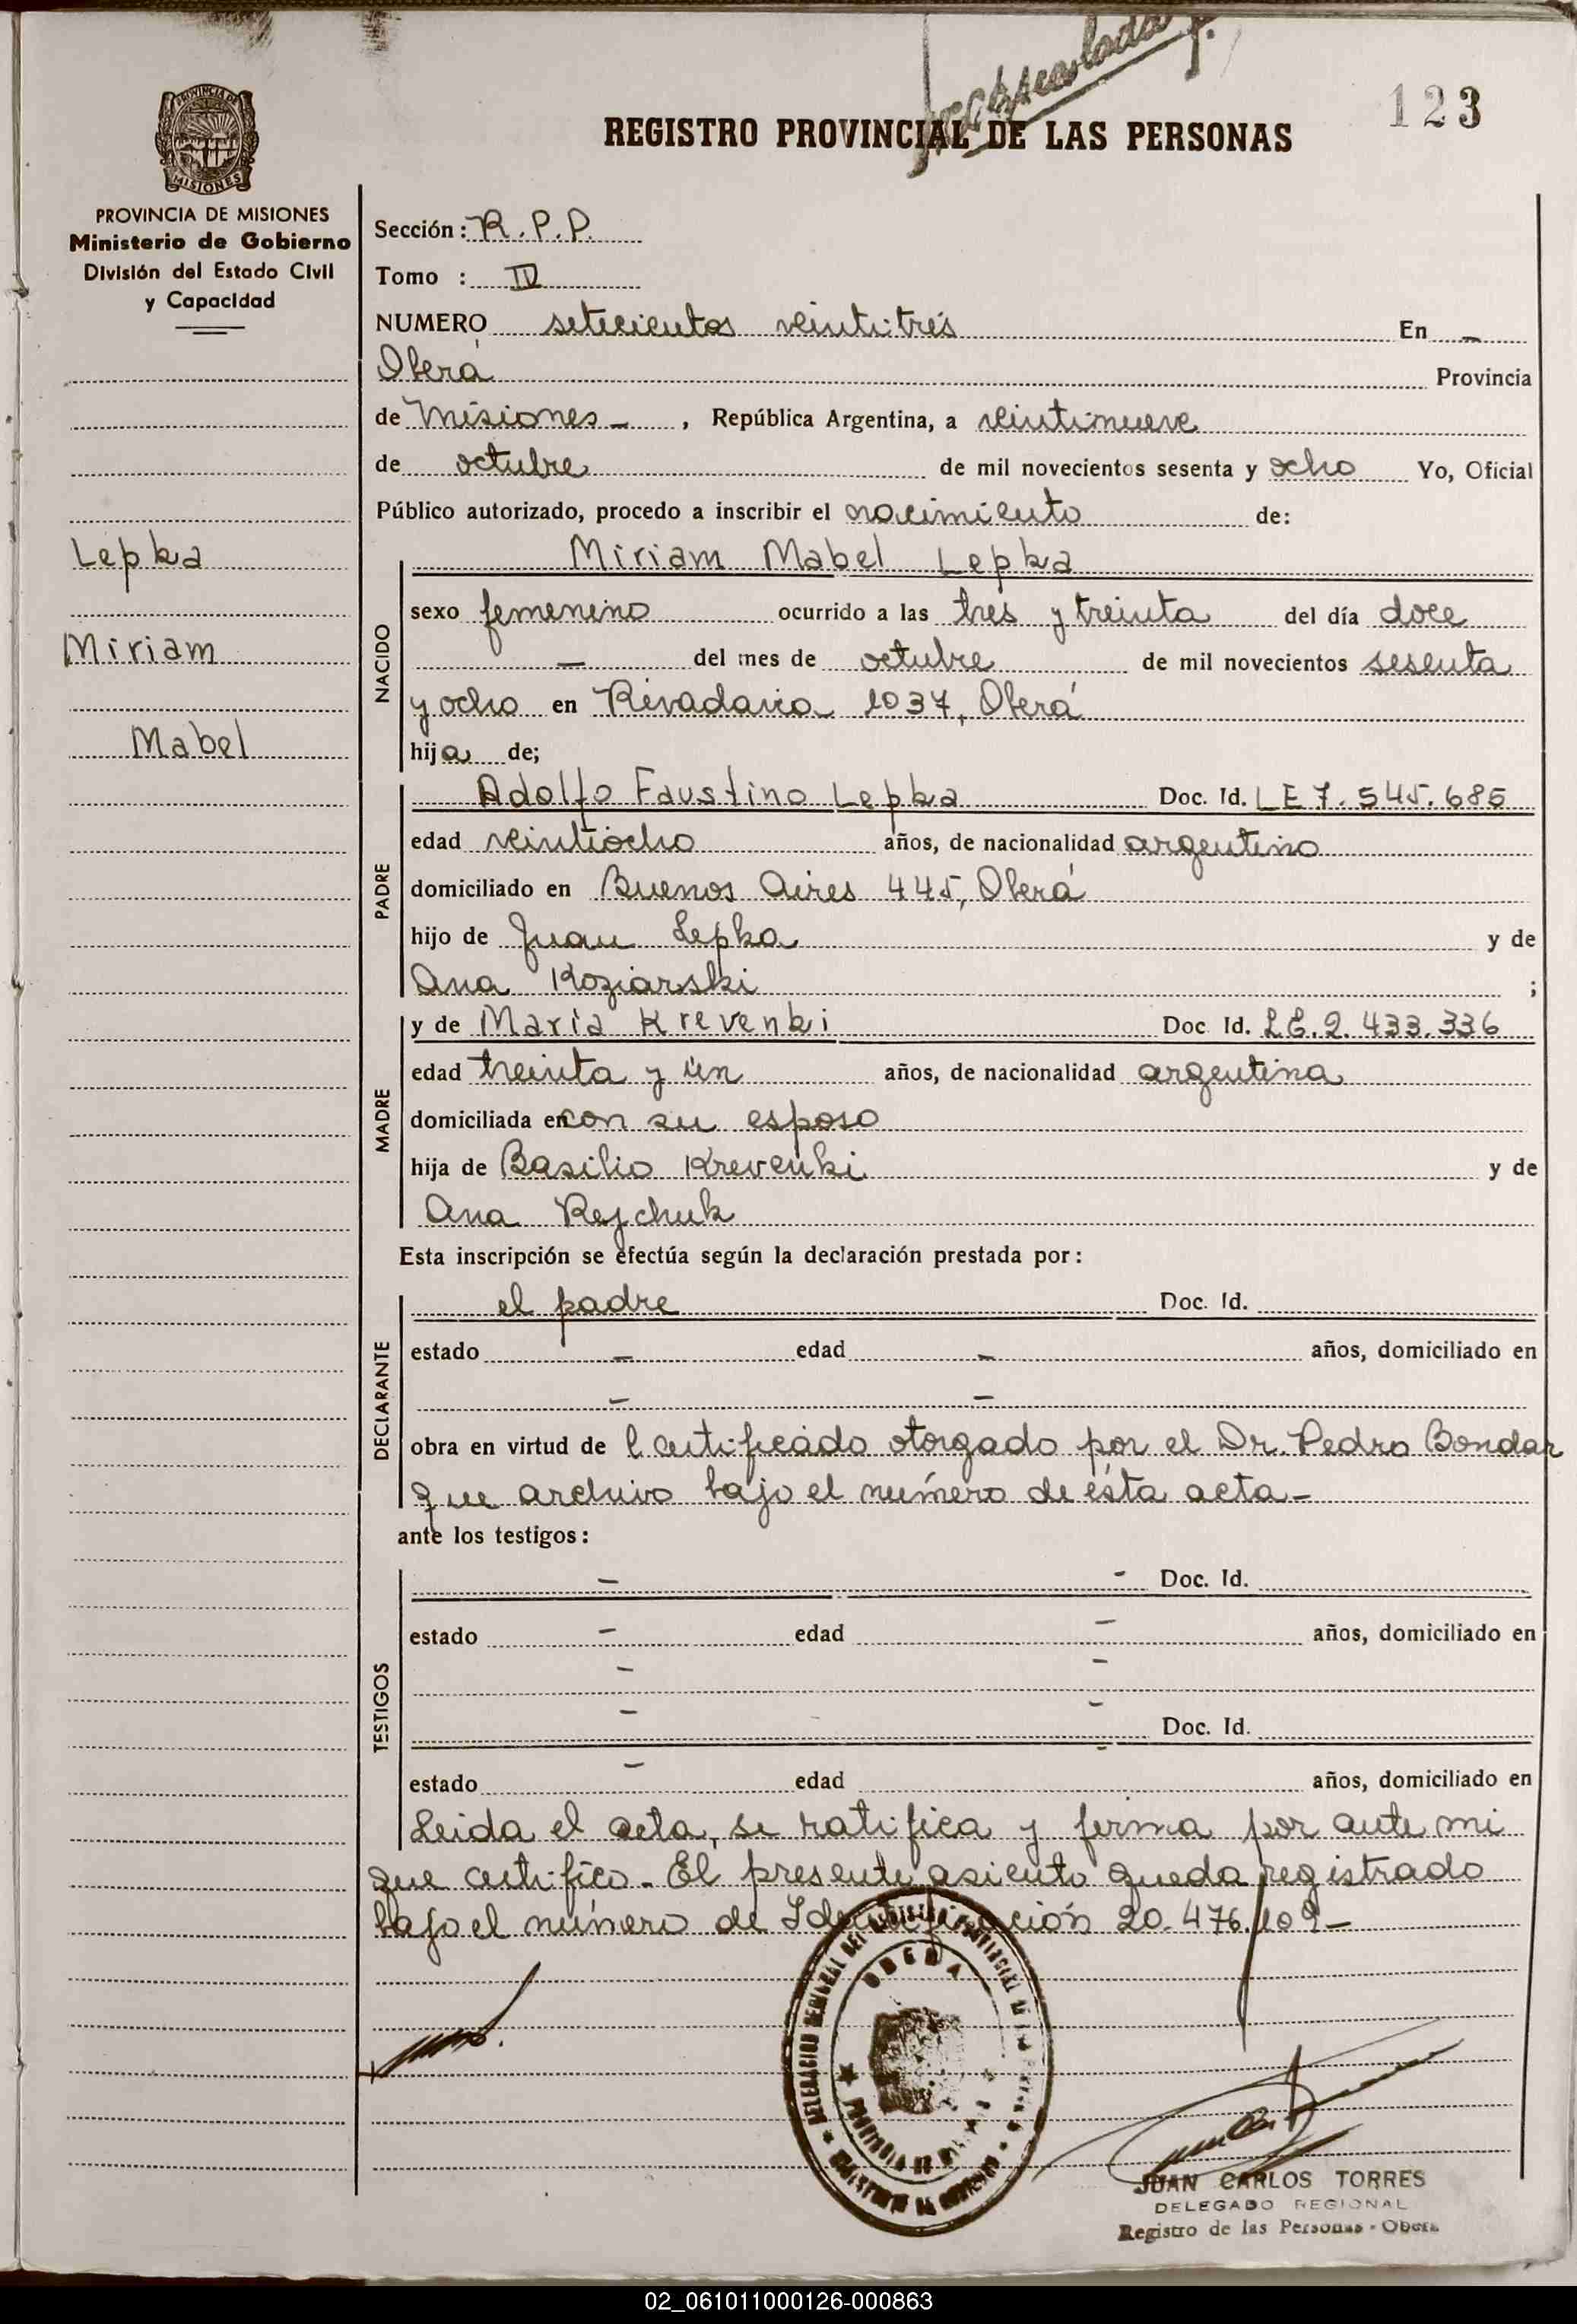 123
REGISTRO PROVINCIAL DE LAS PERSONAS
PROVINCIA DE MISIONES
MISIONES
PROVINCIA DE MISIONES
Ministerio de Gobierno
División del Estado Civil
y Capacidad
Lepka
Miriam
Mabel
Sección: R.P.P.
Tomo : IV
NUMERO setecientos veintitrés En –
Oberá Provincia
de Misiones – , República Argentina, a veintinueve
de octubre de mil novecientos sesenta y ocho Yo, Oficial
Público autorizado, procedo a inscribir el nacimiento de:
NACIDO
Miriam Mabel Lepka
sexo femenino ocurrido a las tres y treinta del día doce
– del mes de octubre de mil novecientos sesenta
y ocho en Rivadavia 1037, Oberá
hija de;
PADRE
Adolfo Faustino Lepka Doc. Id. LE 7.545.685
edad veintiocho años, de nacionalidad argentino
domiciliado en Buenos Aires 445, Oberá
hijo de Juan Lepka y de
Ana Koziarski ;
MADRE
y de María Krevenki Doc. Id. L.E. 2.433.336
edad treinta y un años, de nacionalidad argentina
domiciliada en con su esposo
hija de Basilio Krevenki y de
Ana Rejchuk
Esta inscripción se efectúa según la declaración prestada por:
DECLARANTE
el padre Doc. Id.
estado – edad – años, domiciliado en
– –
obra en virtud de l certificado otorgado por el Dr. Pedro Bondar
que archivo bajo el número de ésta acta –
ante los testigos:
TESTIGOS
– – Doc. Id.
estado – edad – años, domiciliado en
– –
– – Doc. Id.
estado – edad – años, domiciliado en
Leida el acta, se ratifica y firma por ante mi
que certifico. El presente asiento queda registrado
bajo el número de Identificación 20.476.109 –
OBERA
JUAN CARLOS TORRES
DELEGADO REGIONAL
Registro de las Personas - Oberá
02_061011000126-000863